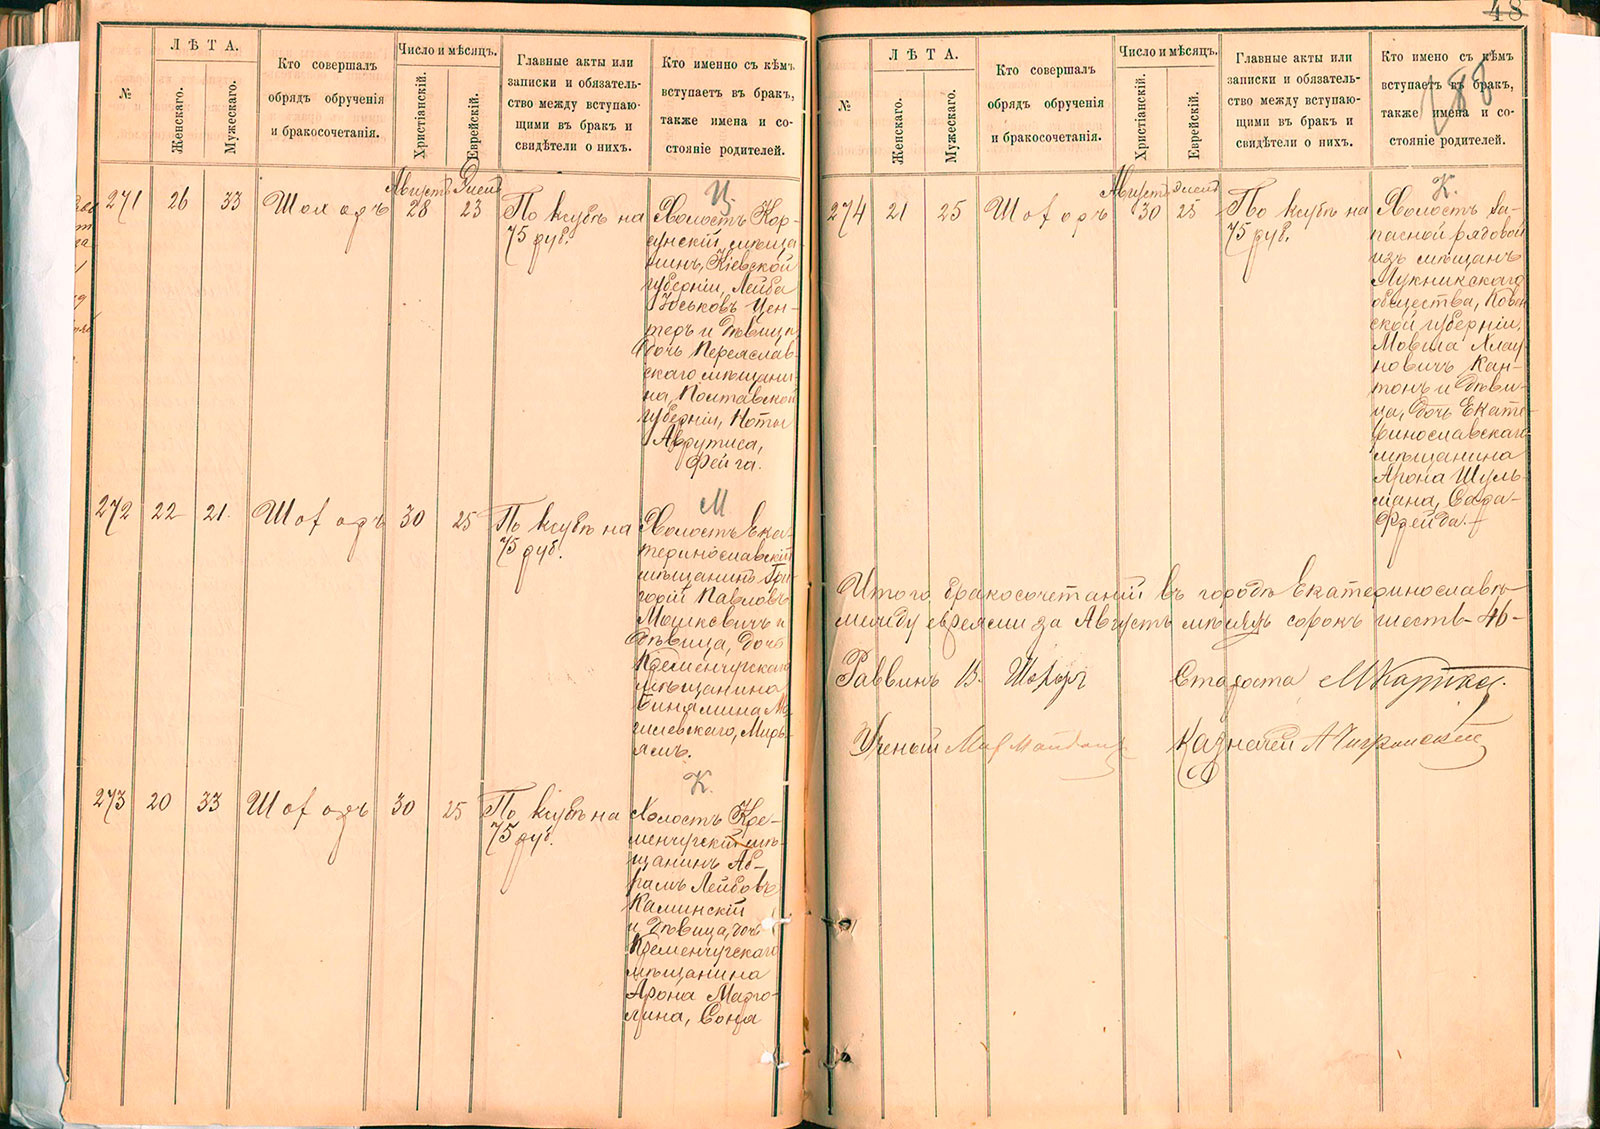 48
188
№
ЛѢТА.
Женскаго.
Мужескаго.
Кто совершалъ
обрядъ обрученія
и бракосочетанія.
Число и мѣсяцъ.
Христіанскій.
Еврейскій.
Главные акты или
записки и обязатель-
ство между вступаю-
щими въ бракъ и
свидѣтели о нихъ.
Кто именно съ кѣмъ
вступаетъ въ бракъ,
также имена и со-
стояніе родителей.
271 26 33 Шохоръ
Августъ 28
Элелъ 23
По ксубѣ на
75 руб.
Ц
Холостъ Кор-
сунскій мѣща-
нинъ, Кіевской
губерніи, Лейба
Юськовъ Цен-
теръ и дѣвица
дочь Переяслав-
скаго мѣщани-
на, Полтавской
губерніи,Ноты
Аврутиса,
Фейга.
272 22 21. Шохоръ 30 25
По ксубѣ на
75 руб.
М
Холостъ Ека-
теринославскій
мѣщанинъ Гри-
горій Павловъ
Мошкевичъ и
дѣвица, дочь
Кременчугскаго
мѣщанина
Биньямина Мо-
гилевскаго, Мирь-
ямъ.
273 20 33 Шохоръ 30 25
По ксубѣ на
75 руб.
К.
Холостъ Кре-
менчугскій мѣ-
щанинъ Аб-
рамъ Лейбовъ
Каминскій
и дѣвица, дочь
Кременчугскаго
мѣщанина
Арона Марго-
лина, Соня
№
ЛѢТА.
Женскаго.
Мужескаго.
Кто совершалъ
обрядъ обрученія
и бракосочетанія.
Число и мѣсяцъ.
Христіанскій.
Еврейскій.
Главные акты или
записки и обязатель-
ство между вступаю-
щими въ бракъ и
свидѣтели о нихъ.
Кто имено съ кѣмъ
вступаетъ въ бракъ,
также имена и со-
стояніе родителей.
274 21 25 Шохоръ
Августъ 30
Элелъ 25
По ксубѣ на
75 руб.
К.
Холостъ За-
пасной рядовой
изъ мѣщанъ
Лукникскаго
общества, Ковен-
ской губерніи,
Мовша
новичъ Кан-
тонъ и дѣви-
ца, дочь Екате-
ринославскаго
мѣщанина
Арона Шуль-
мана, Сара-
Фрейда.
Итого бракосочетаній въ городѣ Екатеринославѣ
между евреями за Августъ мѣсяцъ сорокъ шесть - 46 -
Раввинъ В. Шохоръ Староста
Ученый Казначей